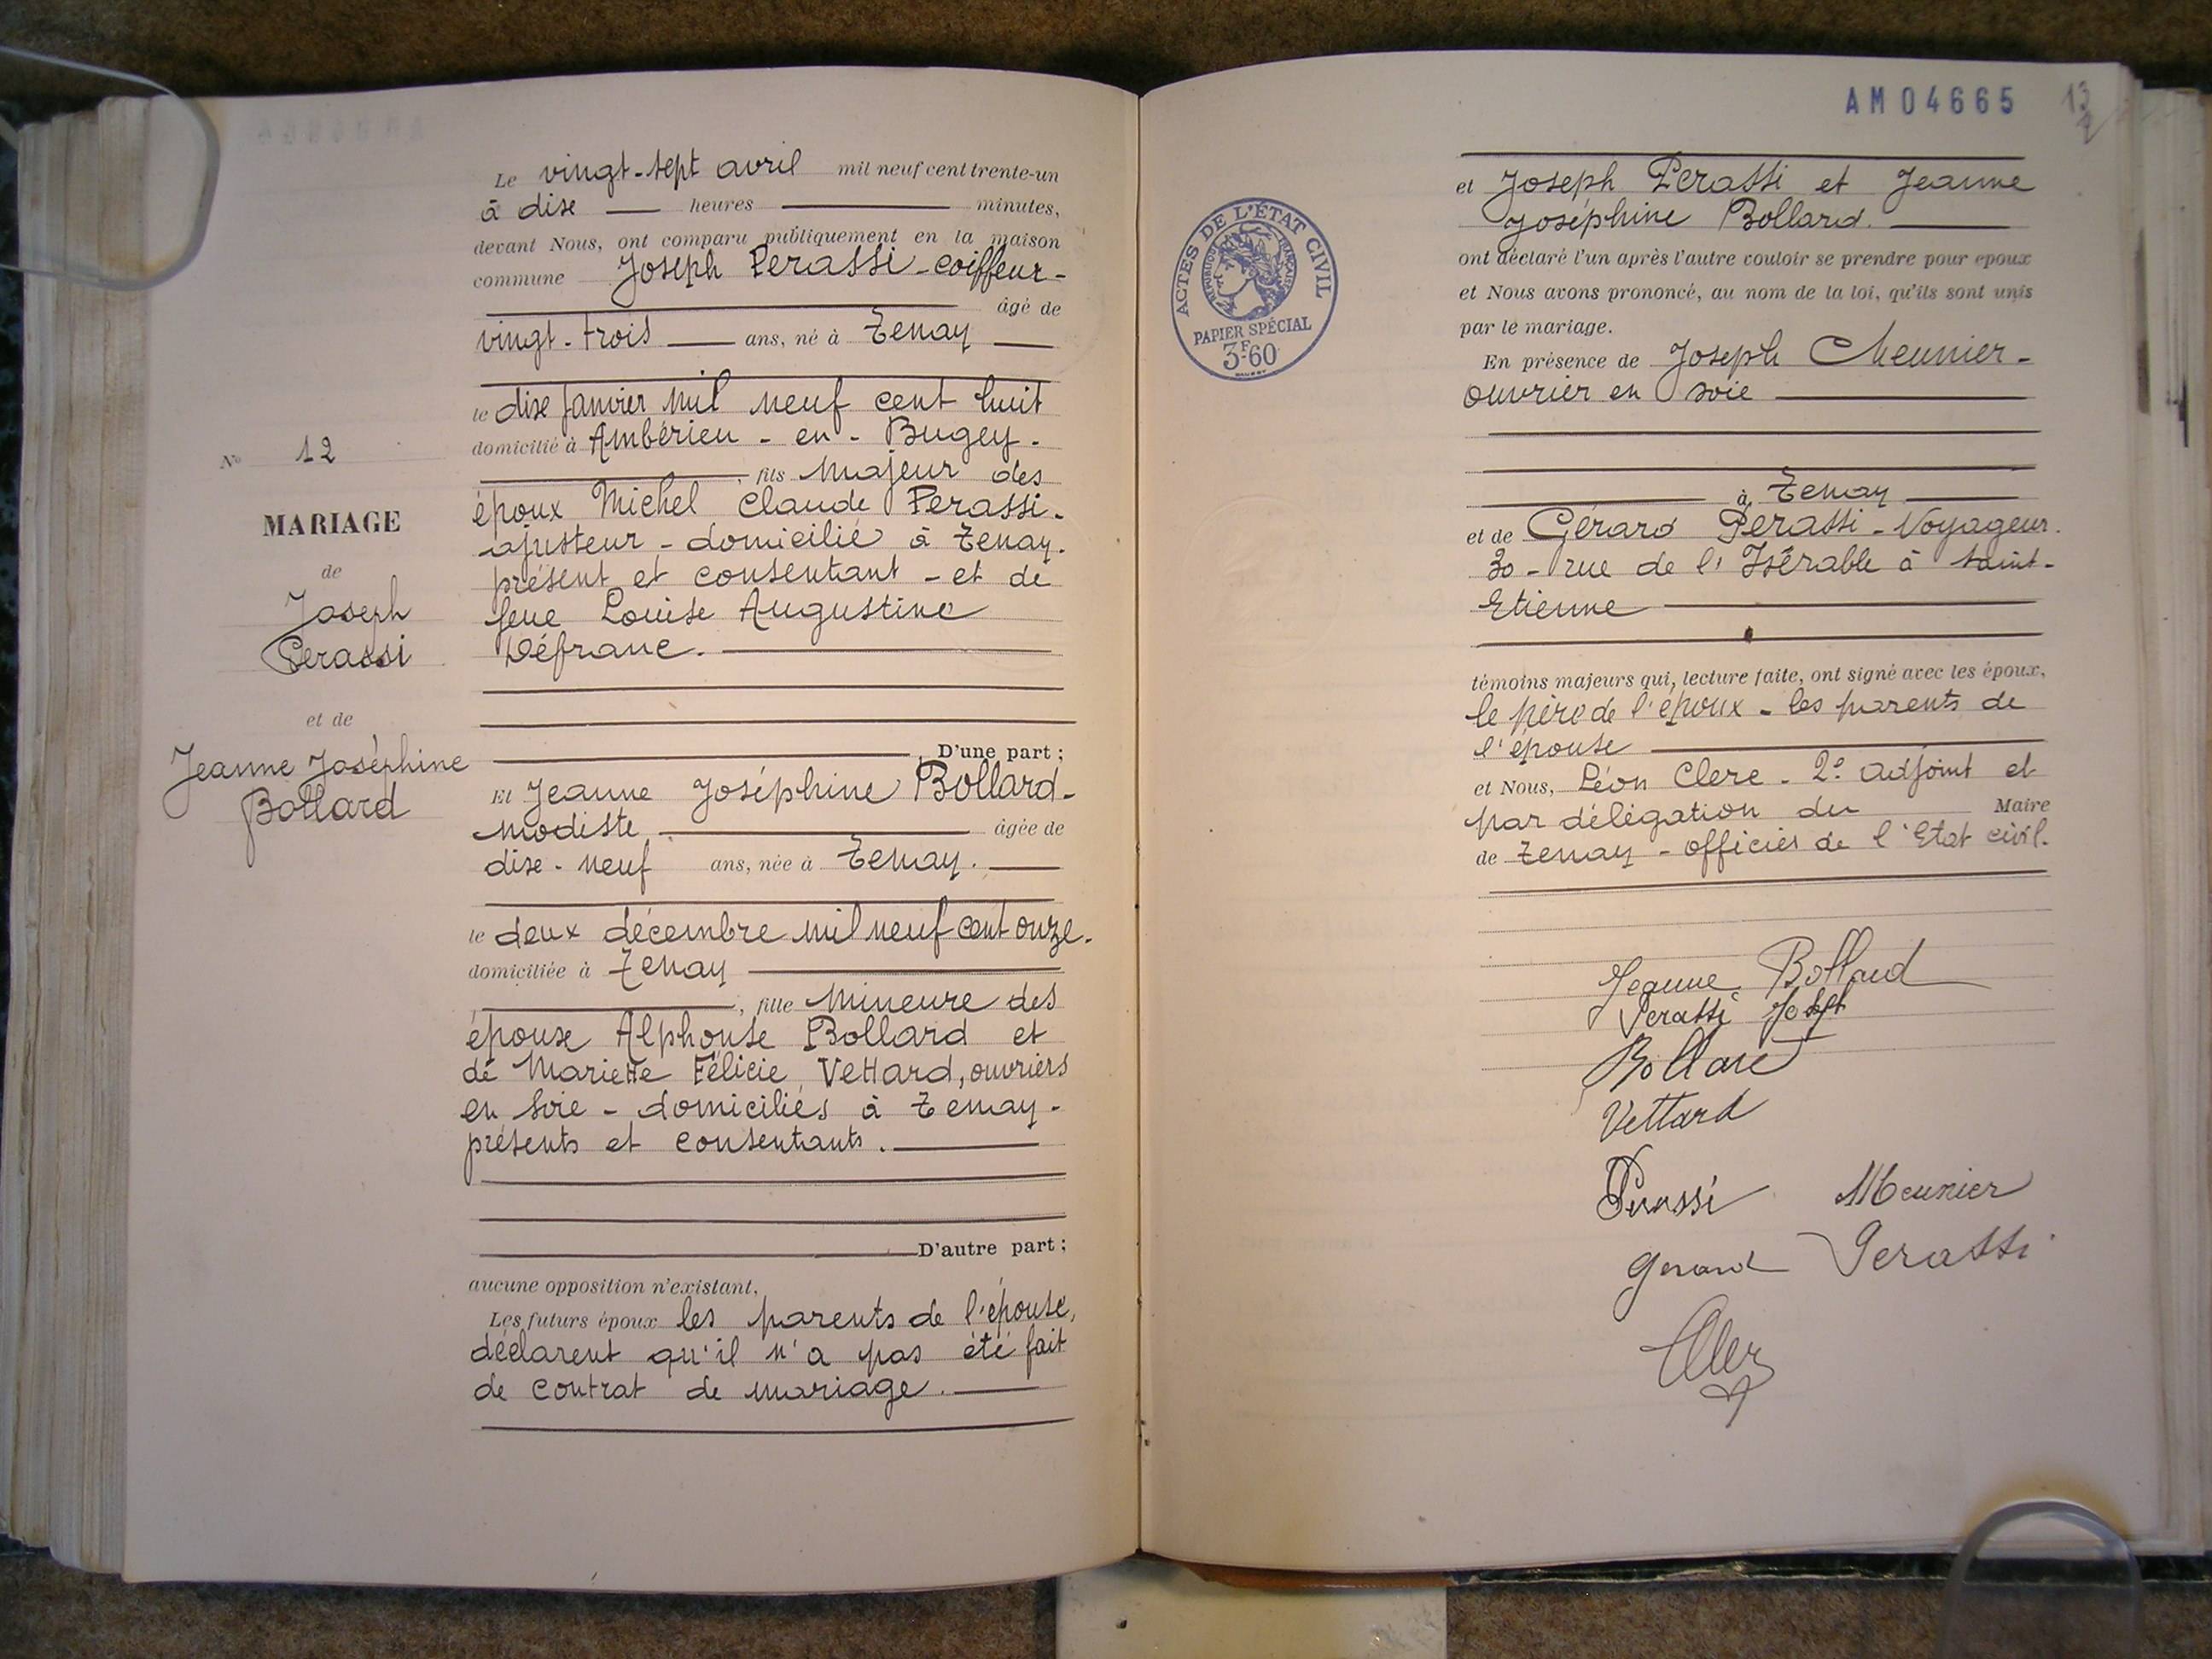 Le vingt-sept avril mil neuf cent trente-un
à dise heures minutes,
devant Nous, ont comparu publiquement en la maison
commune Joseph Perassi - coiffeur -
âgé de
vingt-trois ans, né à Tenay
le dise janvier mil neuf cent huit
domicilié à Ambérieu - en - Bugey.
, fils majeur des
époux Michel Claude Perassi -
ajusteur - domicilié à Tenay.
présent et consentant - et de
feue Louise Augustine
Défranc.
D'une part ;
N° 12
MARIAGE
de
Joseph
Perassi
et de
Jeanne Joséphine
Bollard
Et Jeanne Joséphine Bollard -
modiste âgée de
dise-neuf ans, née à Tenay.
le deux décembre mil neuf cent onze.
domiciliée à Tenay
, fille mineure des
épouse Alphonse Bollard et
de Mariette Félicie Vettard, ouvriers
en soie - domiciliés à Tenay -
présents et consentants.
D'autre part ;
aucune opposition n'existant,
Les futurs époux les parents de l'épouse,
déclarent qu'il n'a pas été fait
de contrat de mariage.
AM04665 13
ACTES DE L'ÉTAT CIVIL
RÉPUBLIQUE FRANÇAISE
PAPIER SPÉCIAL
3F60
et Joseph Perassi et Jeanne
Joséphine Bollard.
ont déclaré l'un après l'autre vouloir se prendre pour époux
et Nous avons prononcé, au nom de la loi, qu'ils sont unis
par le mariage.
En présence de Joseph Meunier -
ouvrier en soie
à Tenay
et de Gérard Perassi - Voyageur.
30 - rue de l'Isérable à saint-
Etienne
témoins majeurs qui, lecture faite, ont signé avec les époux,
le père de l'époux - les parents de
l'épouse
et Nous, Léon Clerc - 2e adjoint et
par délégation du Maire
de Tenay - officier de l'Etat civil.
Jeanne Bollard
Perassi Joseph
Bollard
Vettard
Perassi Meunier
Gerard Perassi